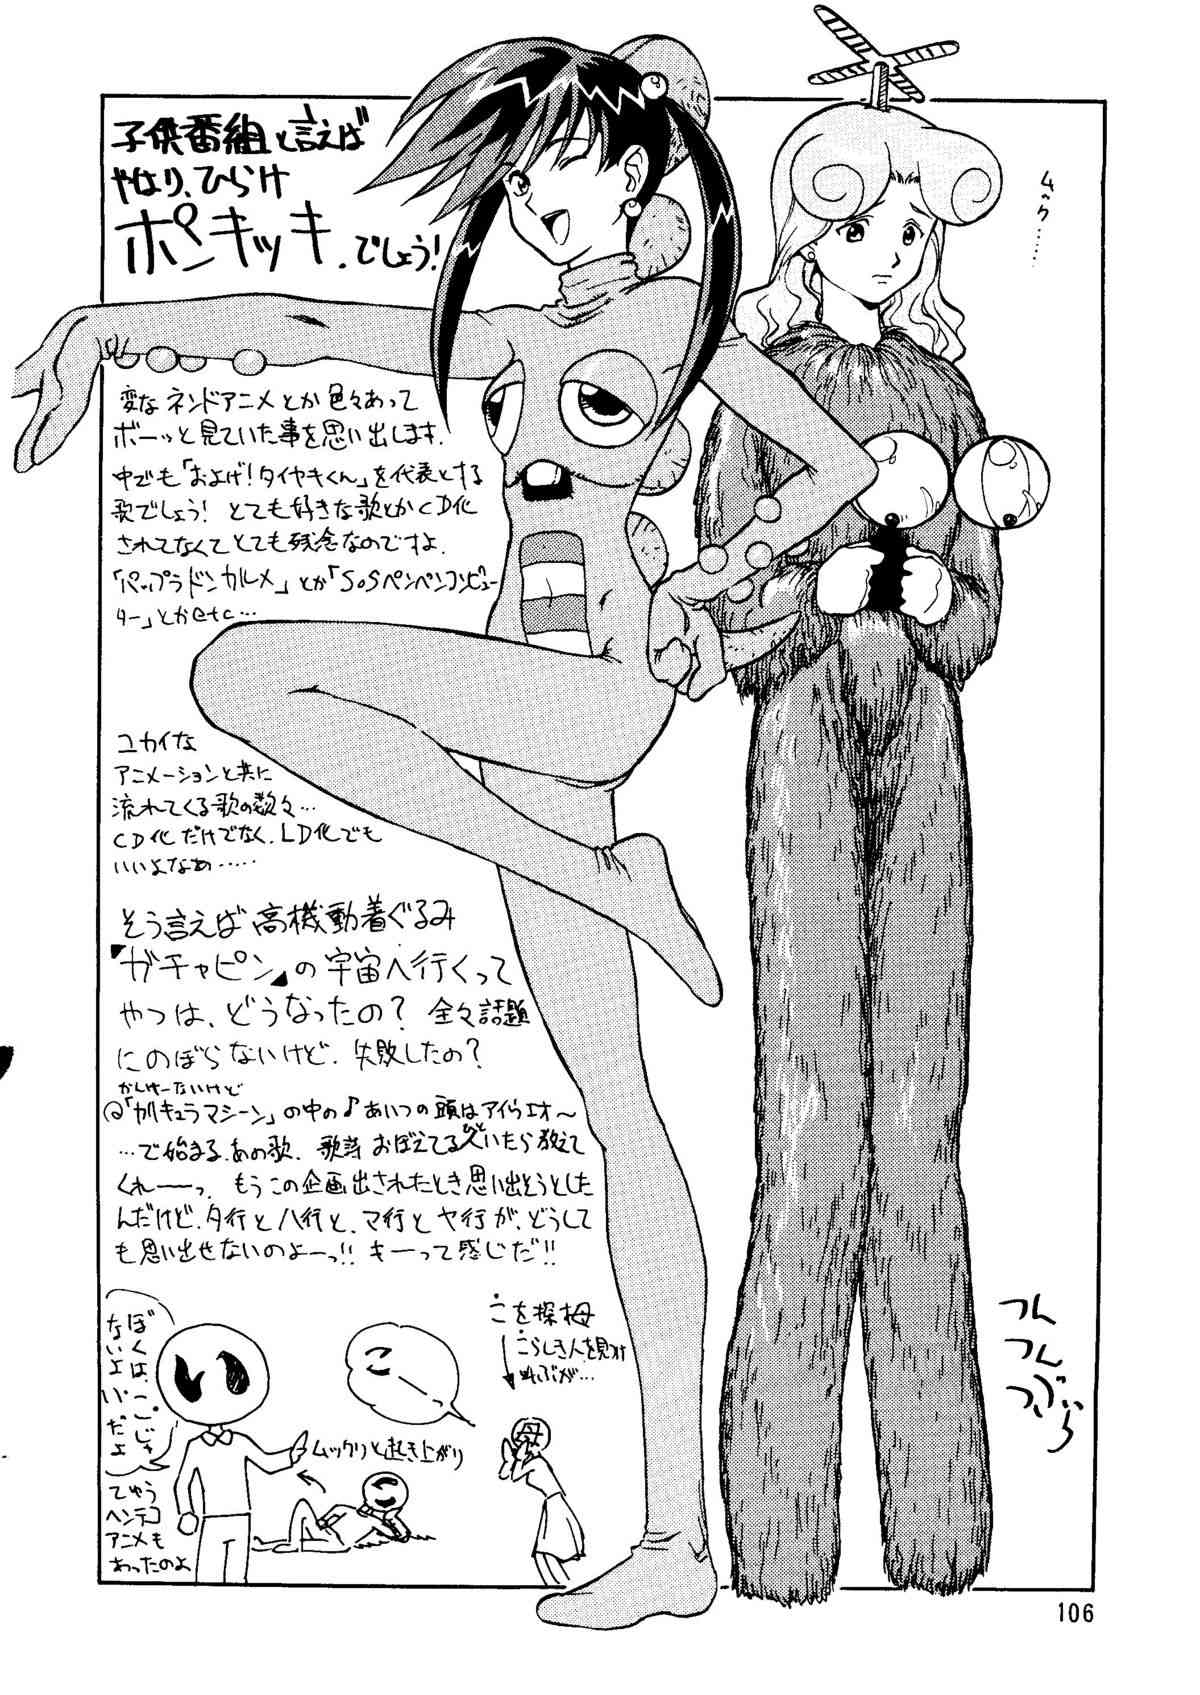 子供番組と言えば
やはり、ひらけ
ポンキッキ、でしょう!
ムック……
変なネンドアニメとか色々あって
ボーッと見ていた事を思い出します。
中でも「およげ!タイヤキくん」を代表とする
歌でしょう! とても好きな歌とかCD化
されてなくてとても残念なのですよ。
「パップラドンカルメ」とか「SOSペンペンコンピュー
ター」とかetc…
ユカイな
アニメーションと共に
流れてくる歌の数々…
CD化だけでなく、LD化でも
いいよなぁ……
そう言えば高機動着ぐるみ
『ガチャピン』の宇宙へ行くって
やつは、どうなったの? 全々話題
にのぼらないけど、失敗したの?
かんけーないけど
@「カリキュラマシーン」の中の♪あいつの頭はアイウエオ〜
…で始まる、あの歌、歌詩おぼえてる人いたら教えて
くれーーっ、もうこの企画出されたとき思い出そうとした
んだけど、タ行とハ行と、マ行とヤ行が、どうして
も思い出せないのよーっ!! キーって感じだ!!
ぼくは、こじゃ
ないよ いだよ
こ
こを探母
こらしき人を見つけ
叫ぶが…
母
い
こ
ムックリと起き上がり
てゅう
ヘンテコ
アニメも
あったのよ
つん
つん
106